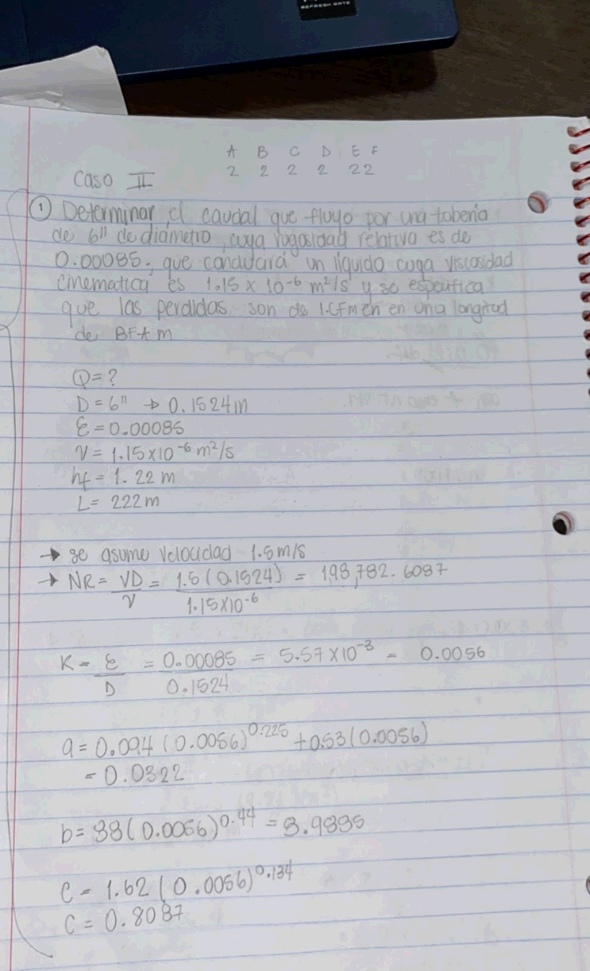 REFRESH RATE
A B C D E F
2 2 2 2 2 2
Caso II
① Determinar el caudal que fluyo por una tuberia
de 6" de diametro, cuya rugosidad relativa es de
0.00085; que conducirá un líquido cuya viscosidad
cinematica es 1.15 x 10⁻⁶ m²/s y se especifica
que las perdidas son de 1.CFm en en una longitud
de BFA m
Q = ?
D = 6" → 0.1524m
ε = 0.00085
ν = 1.15x10⁻⁶ m²/s
hf = 1.22 m
L = 222m
→ se asume velocidad 1.5m/s
→ NR = VD/ν = 1.5(0.1524)/1.15x10⁻⁶ = 198,782.6087
K = ε/D = 0.00085/0.1524 = 5.57x10⁻³ = 0.0056
a = 0.094 (0.0056)^0.225 + 0.53(0.0056)
= 0.0322
b = 88(0.0056)^0.44 = 8.9835
C = 1.62 (0.0056)^0.134
C = 0.8087